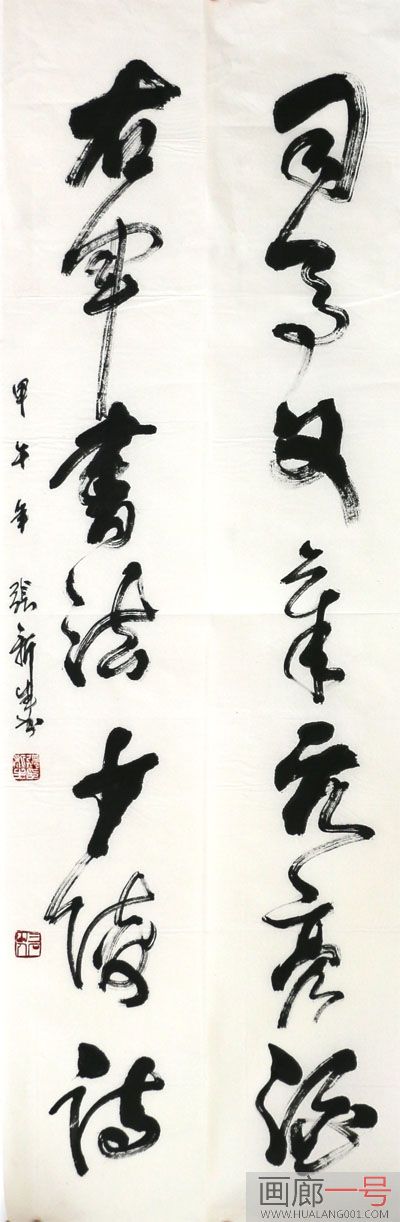 司马文章元亮酒
右军书法少陵诗
甲午年 張新生书
画廊一号
WWW.HUALANG001.COM